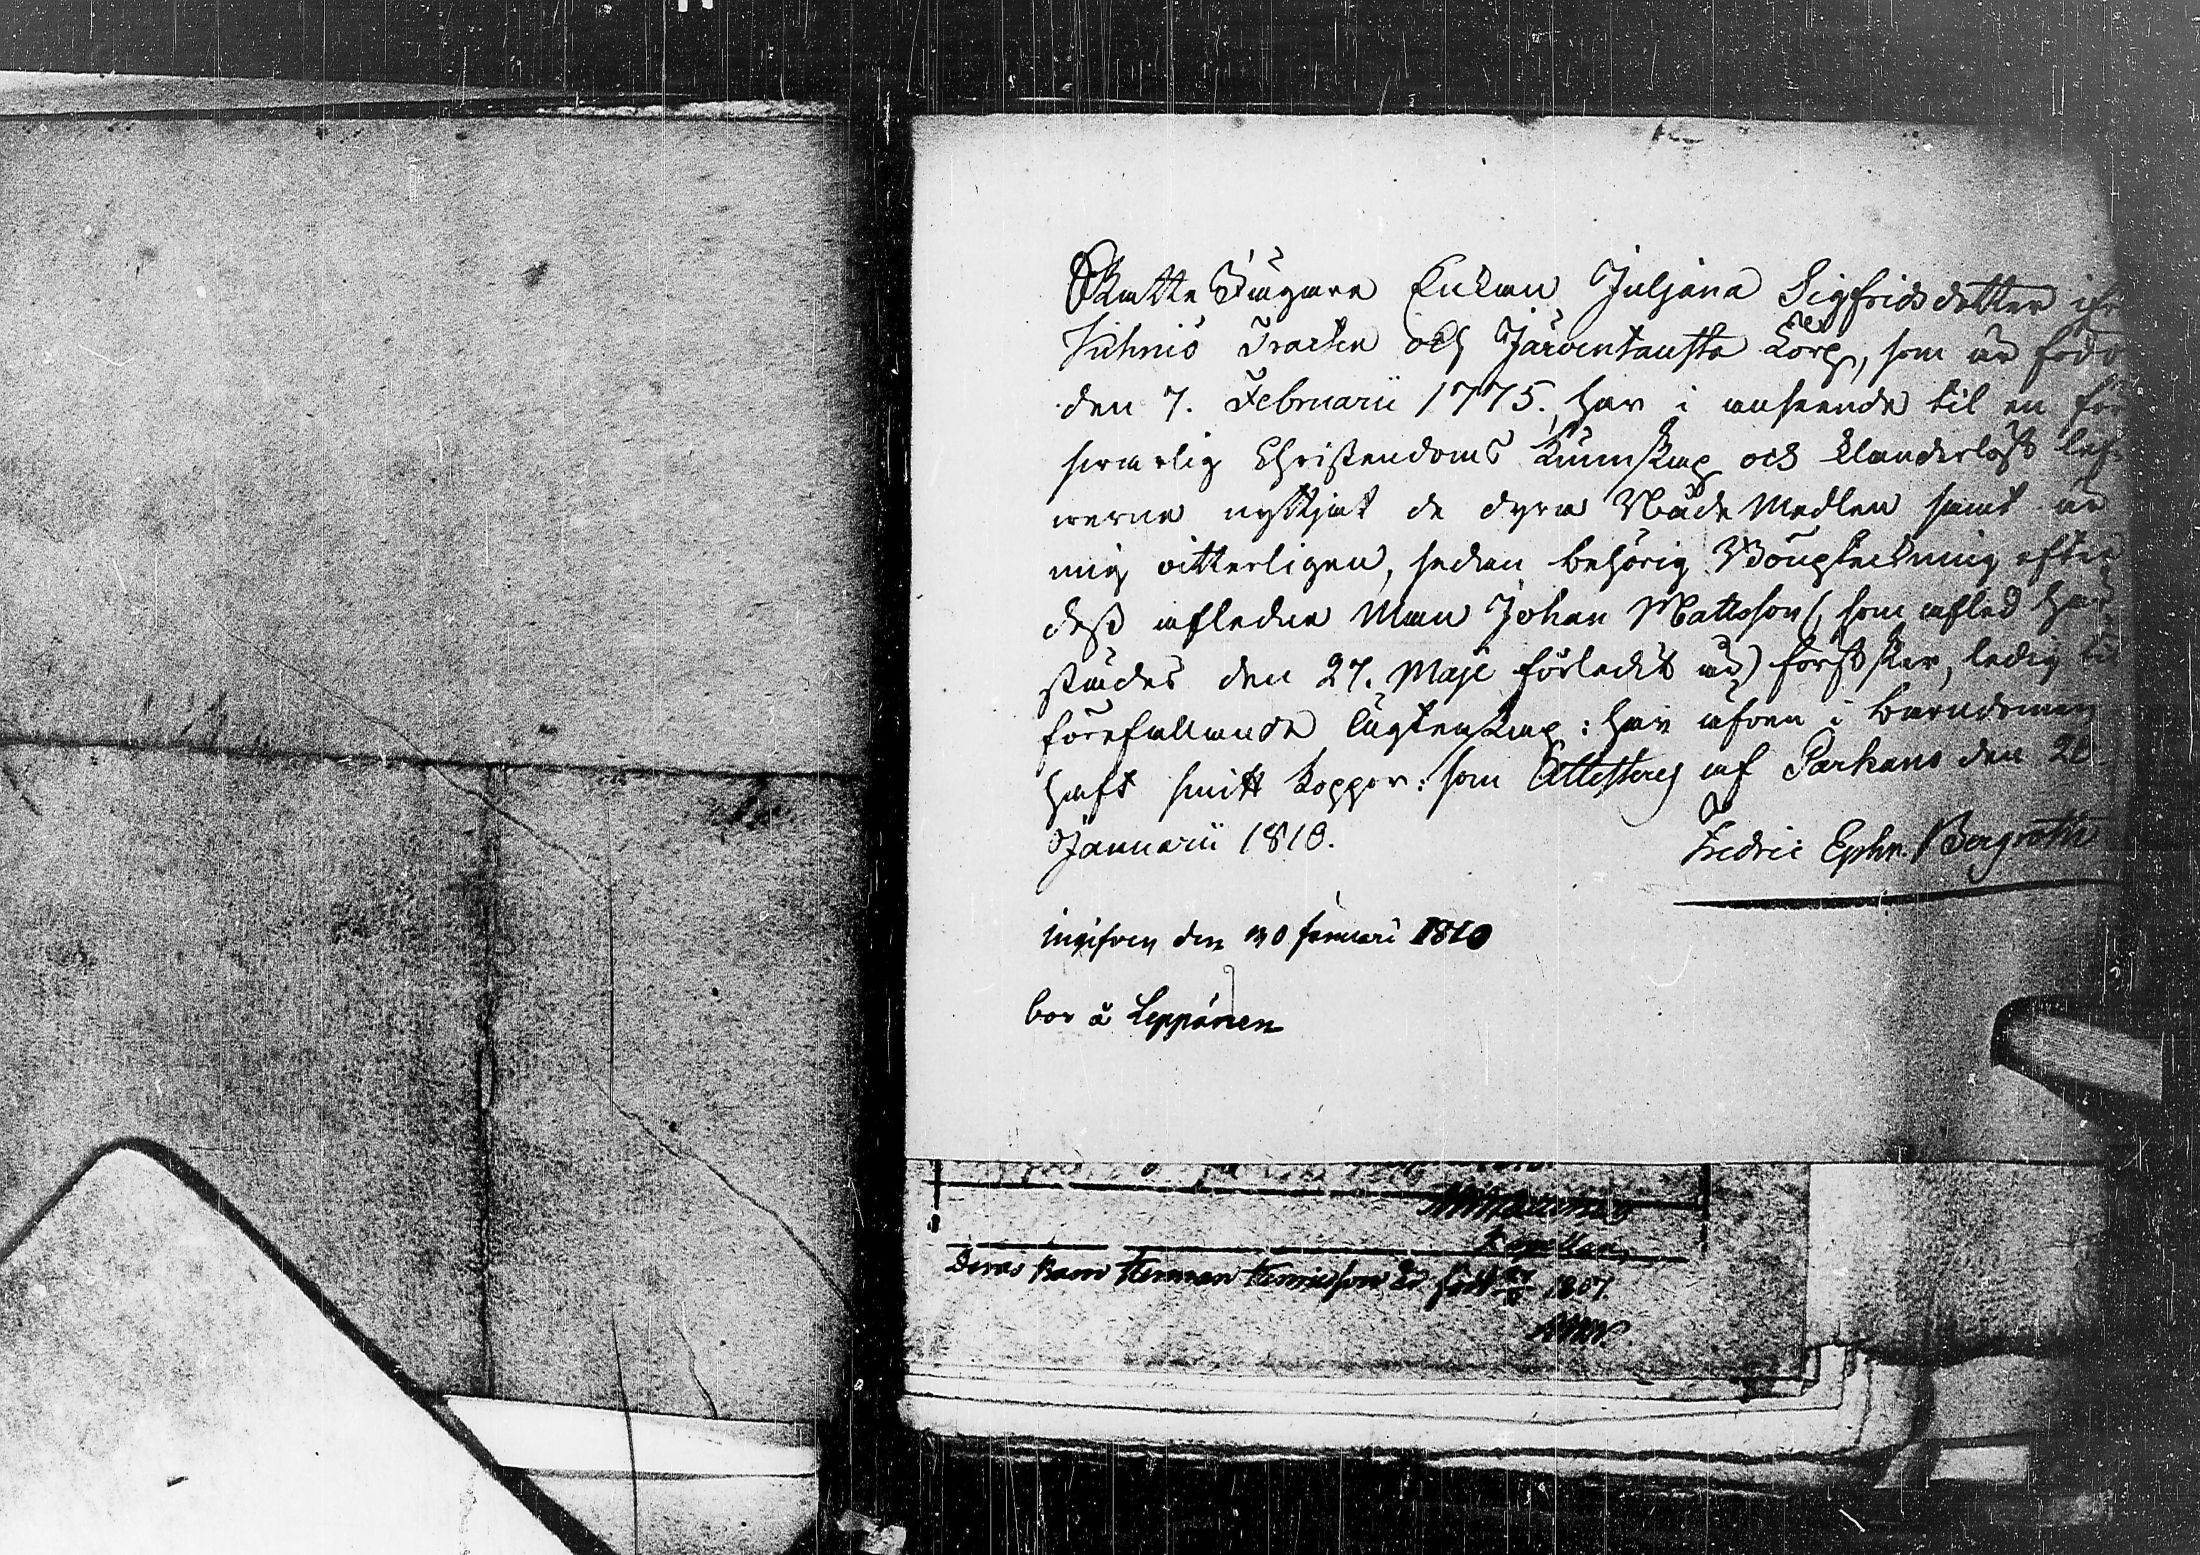 Skatte Ägare Enkan Juljana Sigfridsdotter ifr
Kihniö Tracten och Järventausta Torp, som är född
den 7. Februarii 1775. har i anseende til en för
svarlig Christendoms Kunnskap och klanderlöst lef-
werne nyttjat de dyra Nåde Medlen samt är
mig vitterligen, sedan behörig Bouptekning efter
dess afledne Man Johan Mattsson (som afled här
städes den 27. Maji förledit år) först sker, ledig til
förefallande ägtenskap: har äfven i barndomen
haft smitt koppor: som Attesteras af Parkano den 20
Januarii 1810.
Fredric Ephr. Bergroth
Ingifven den 30 januari 1810
bor å Leppänen
Kapellan
Deras Barn Herman Henricsson är född 1807